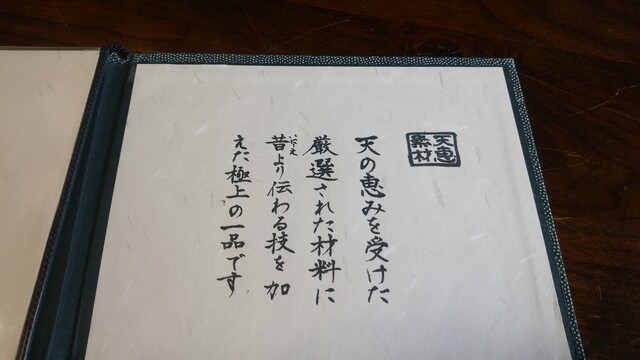 天恵
素材
天の恵みを受けた
厳選された材料に
昔より伝わる技を加
いにしえ
えた極上の一品です